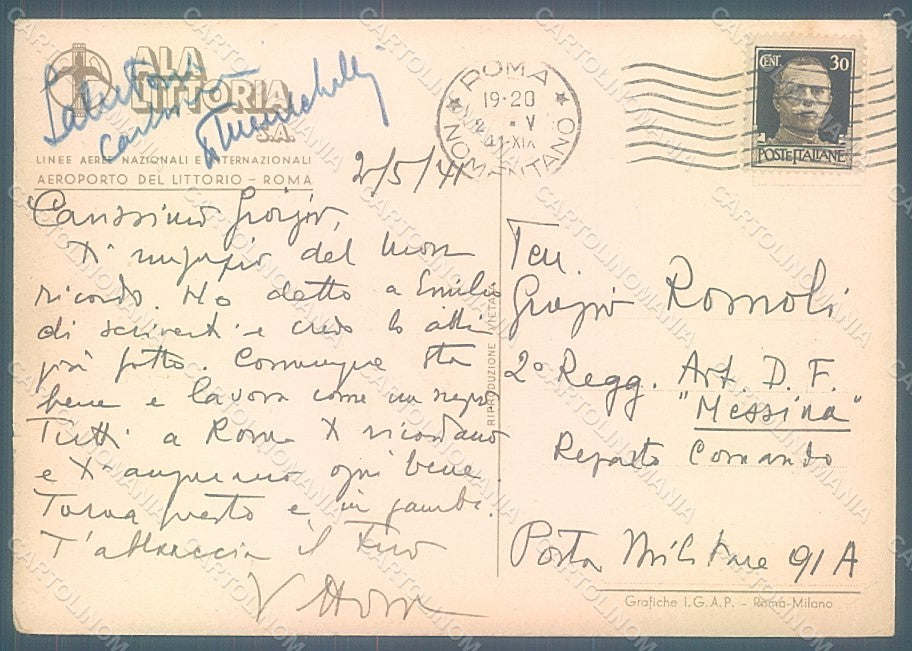 ALA
LITTORIA
S.A.
LINEE AEREE NAZIONALI E INTERNAZIONALI
AEROPORTO DEL LITTORIO - ROMA
Saluton
ROMA
NOMENTANO
19-20
2 V
41-XIX
CENT. 30
POSTE ITALIANE
2/5/41
Carissimo Giorgio,
Ti ringrazio del
ricordo. Ho detto a Emilio
di scriverti e credo lo abbia
già fatto. Comunque sta
bene e lavora come un negro
Tutti a Roma Ti ricordano
e Ti augurano ogni bene
Torna presto e in gamba.
T'abbraccia il tuo
Vittorio
RIPRODUZIONE VIETATA
Ten.
Giorgio Romoli
2º Regg. Art. D. F.
"Messina"
Reparto Comando
Posta Militare 91 A
Grafiche I.G.A.P. - Roma-Milano
CARTOLINOMANIA